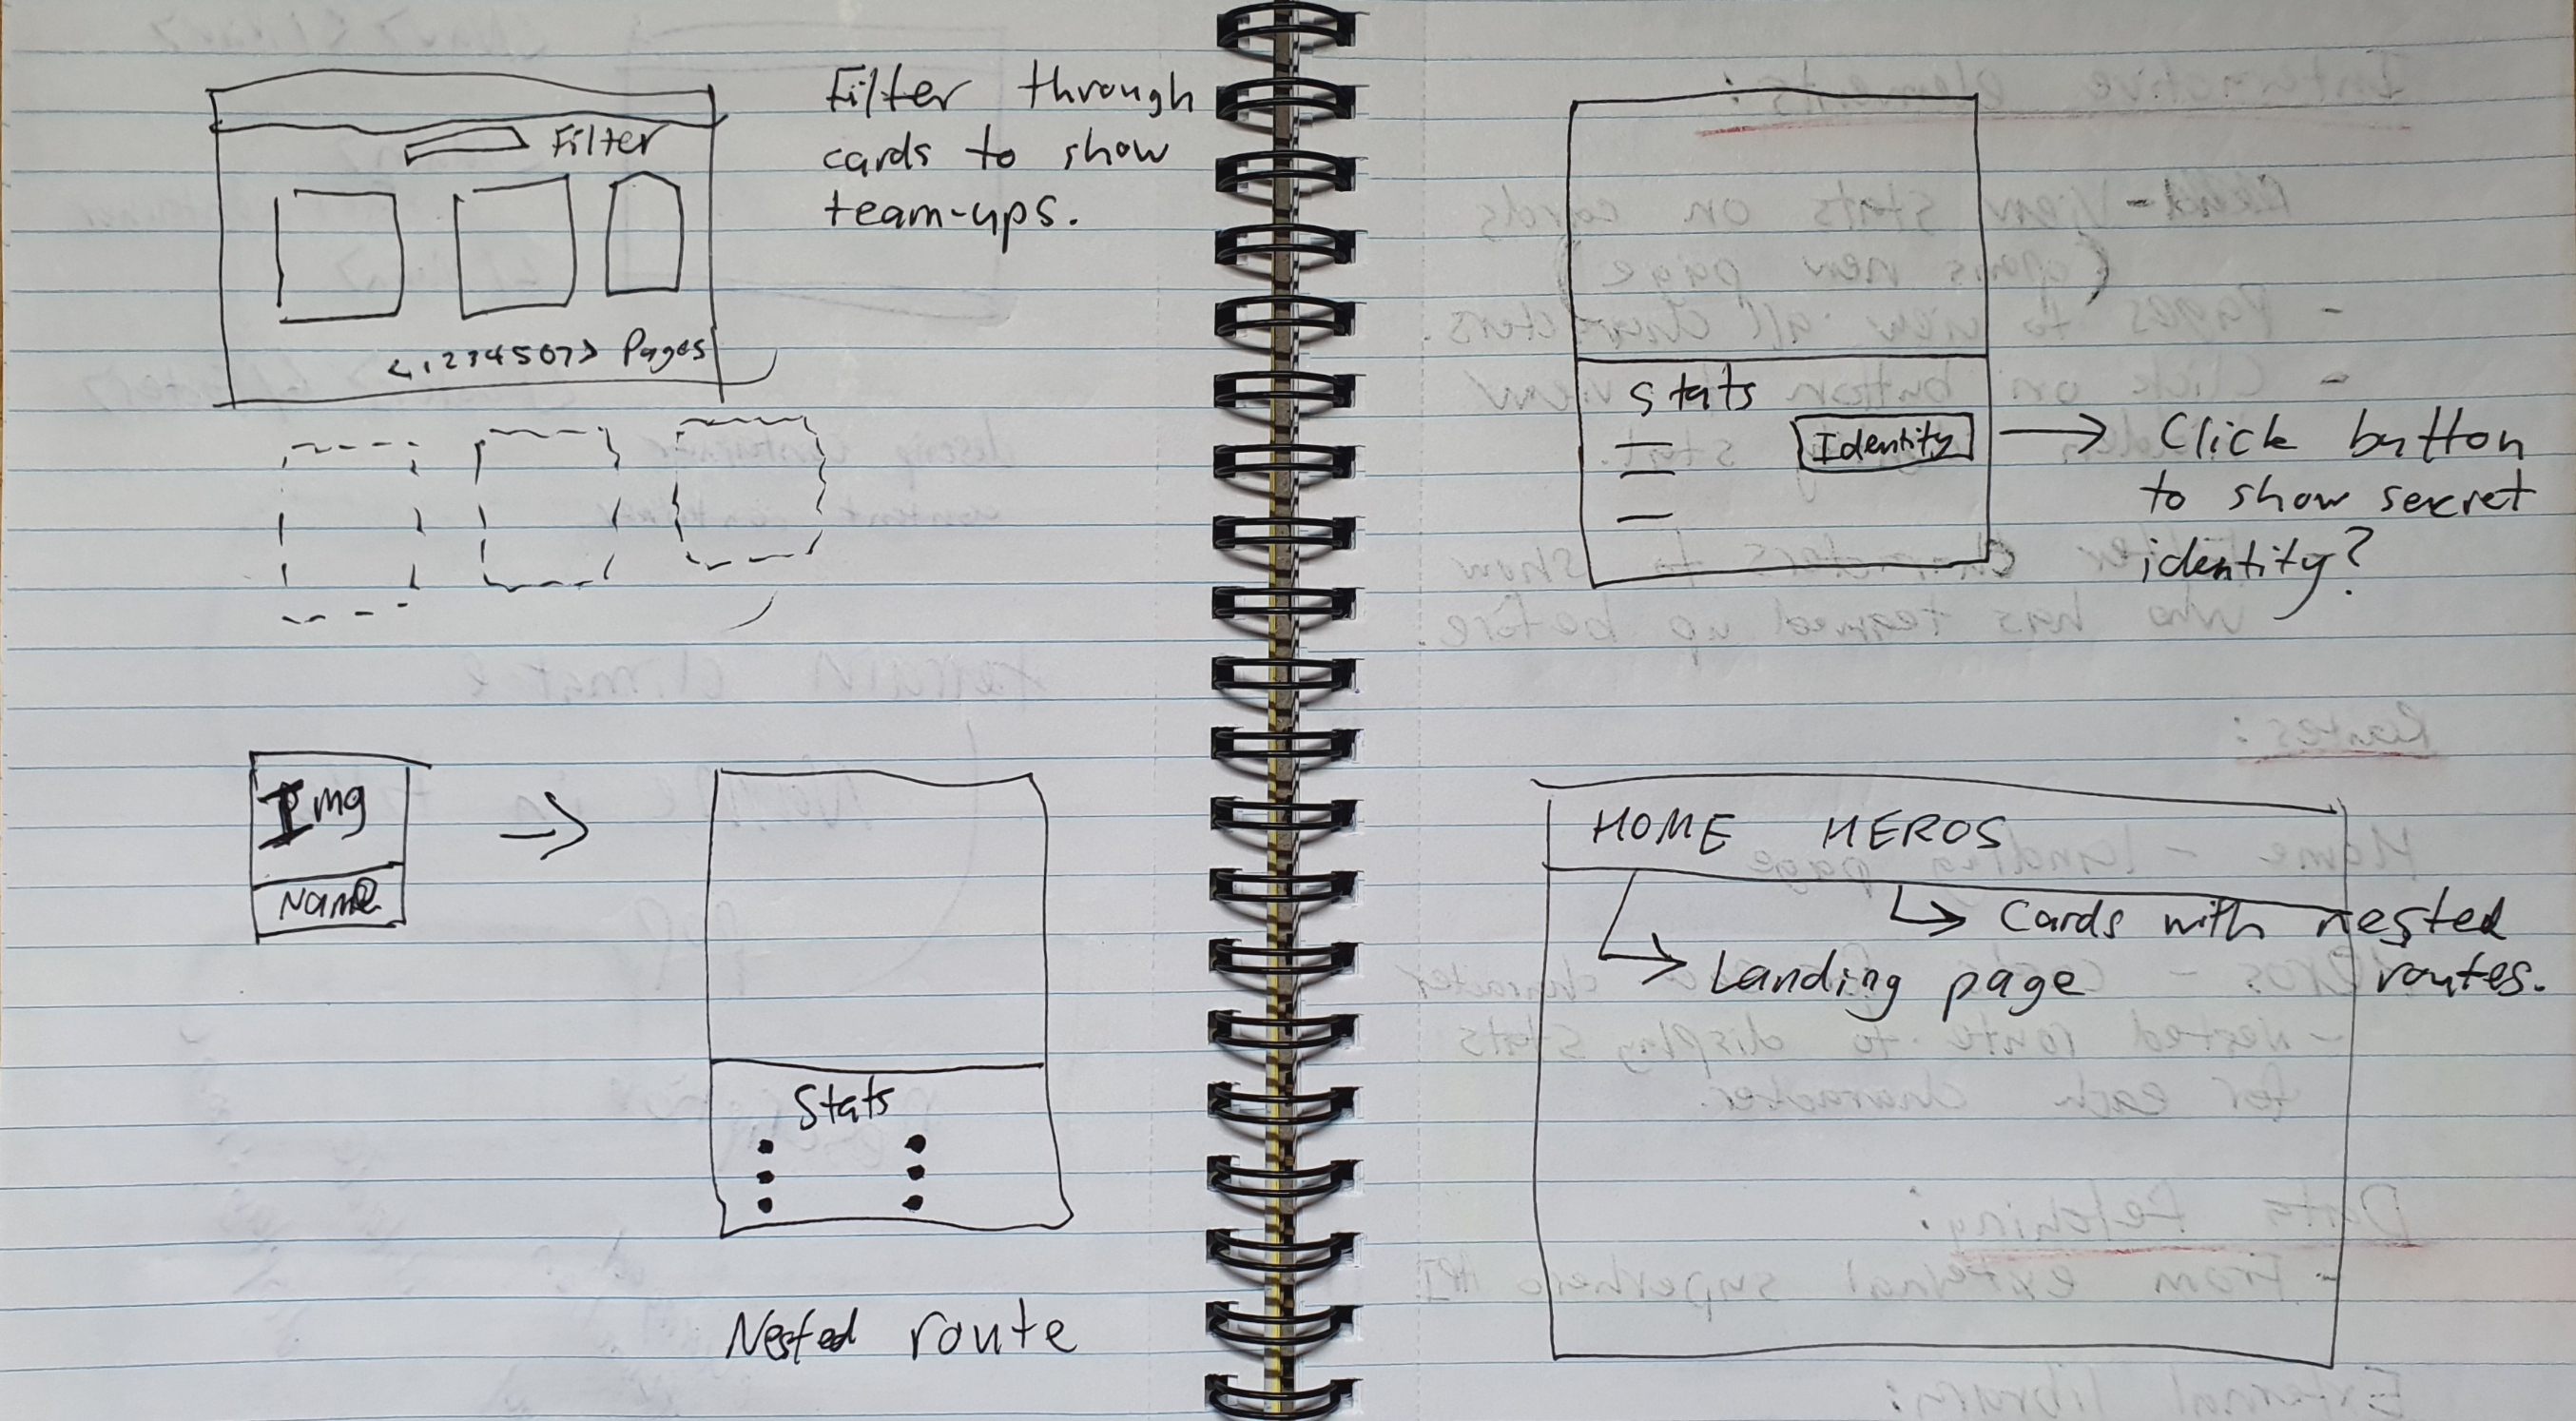 Filter
< 1 2 3 4 5 6 7 > Pages
Filter through
cards to show
team-ups.
Img
Name
Stats
Nested route
Stats
Identity
Click button
to show secret
identity?
HOME HEROS
Cards with nested
routes.
Landing page